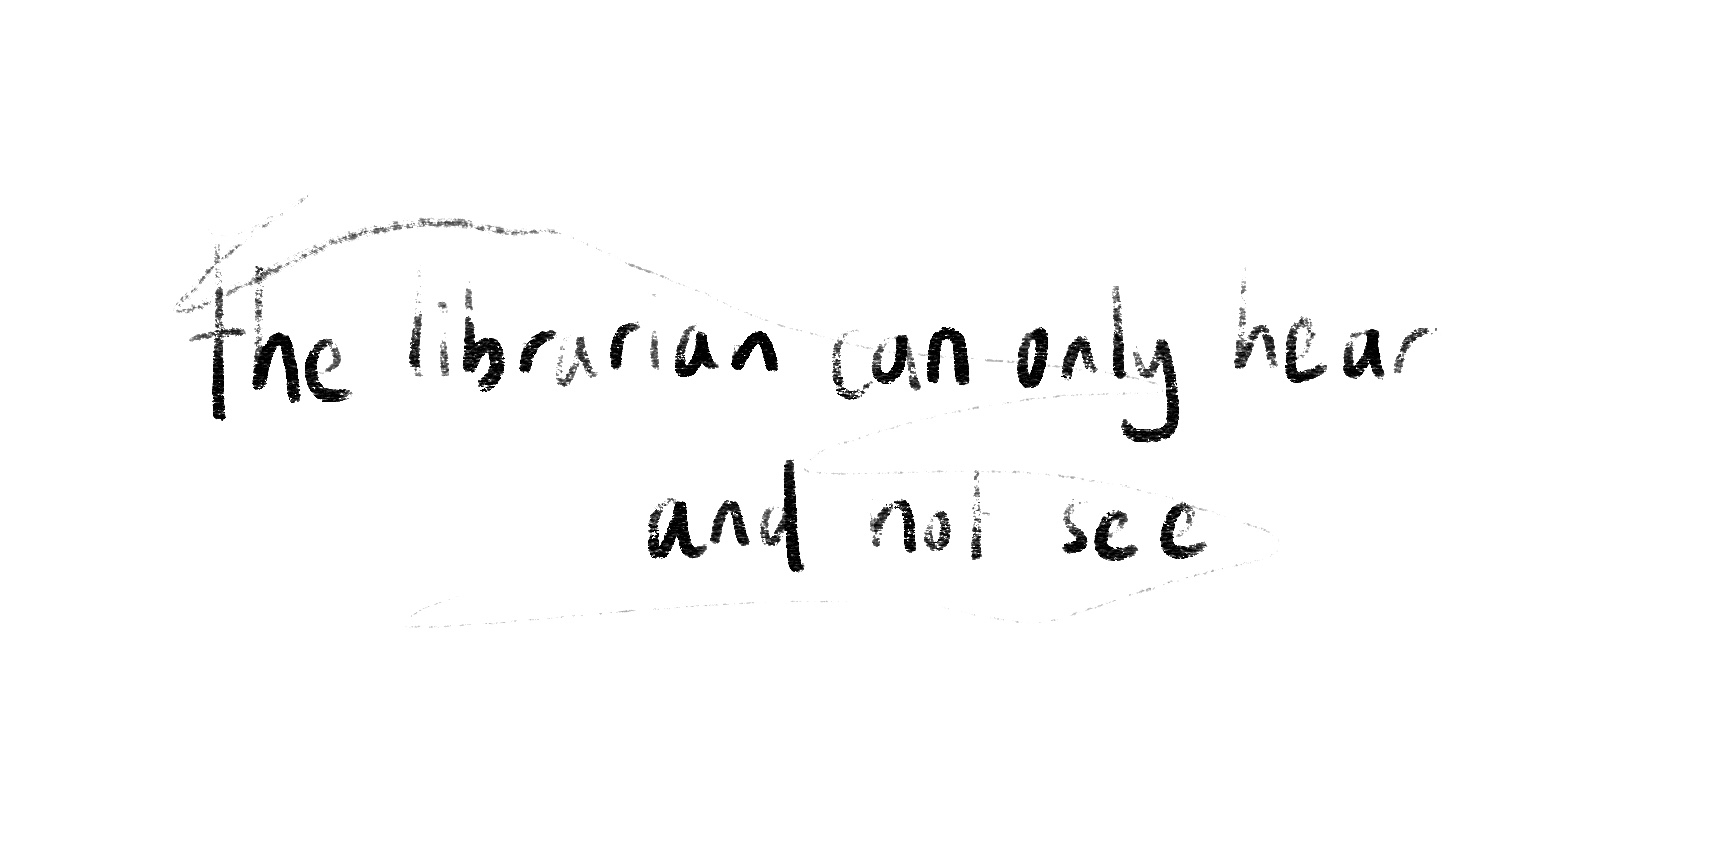 the librarian can only hear
and not see